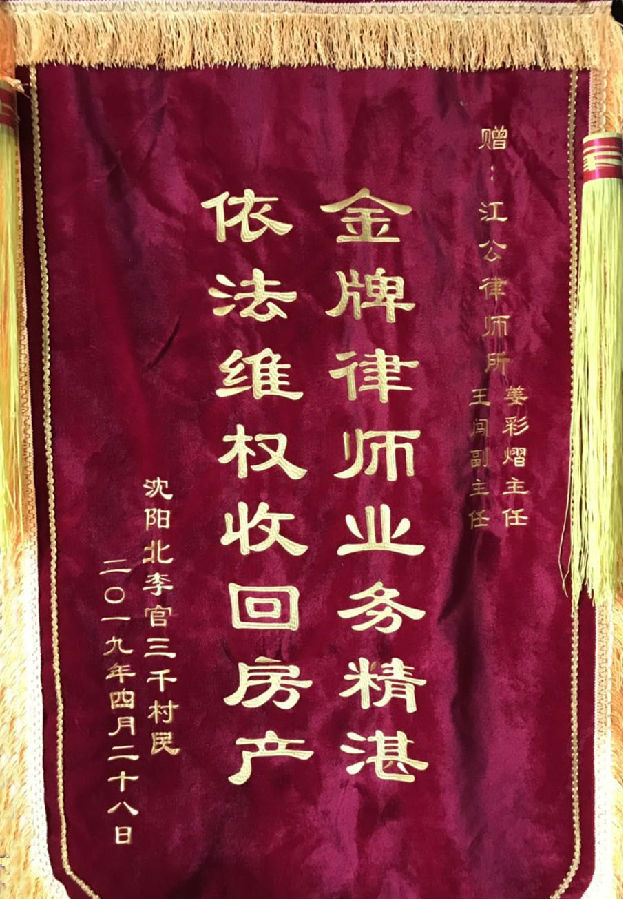 赠：江公律师所
姜彩熠主任
王闯副主任
金牌律师业务精湛
依法维权收回房产
沈阳北李官三千村民
二〇一九年四月二十八日